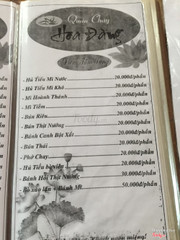 Quán Chay
Hoa Đăng
- Hủ Tiếu Mì Nước 20.000đ/phần
- Hủ Tiếu Mì Khô 20.000đ/phần
- Mì Hoành Thánh 20.000đ/phần
- Mì Tiềm 20.000đ/phần
- Bún Riêu 20.000đ/phần
- Bún Thịt Nướng 20.000đ/phần
- Bánh Canh Bột Xắt 20.000đ/phần
- Bún Thái 20.000đ/phần
- Phở Chay 20.000đ/phần
- Hủ Tiếu 20.000đ/phần
- Bánh Hỏi Thịt Nướng 30.000đ/phần
- Bánh Mì 30.000đ/phần
miệng!